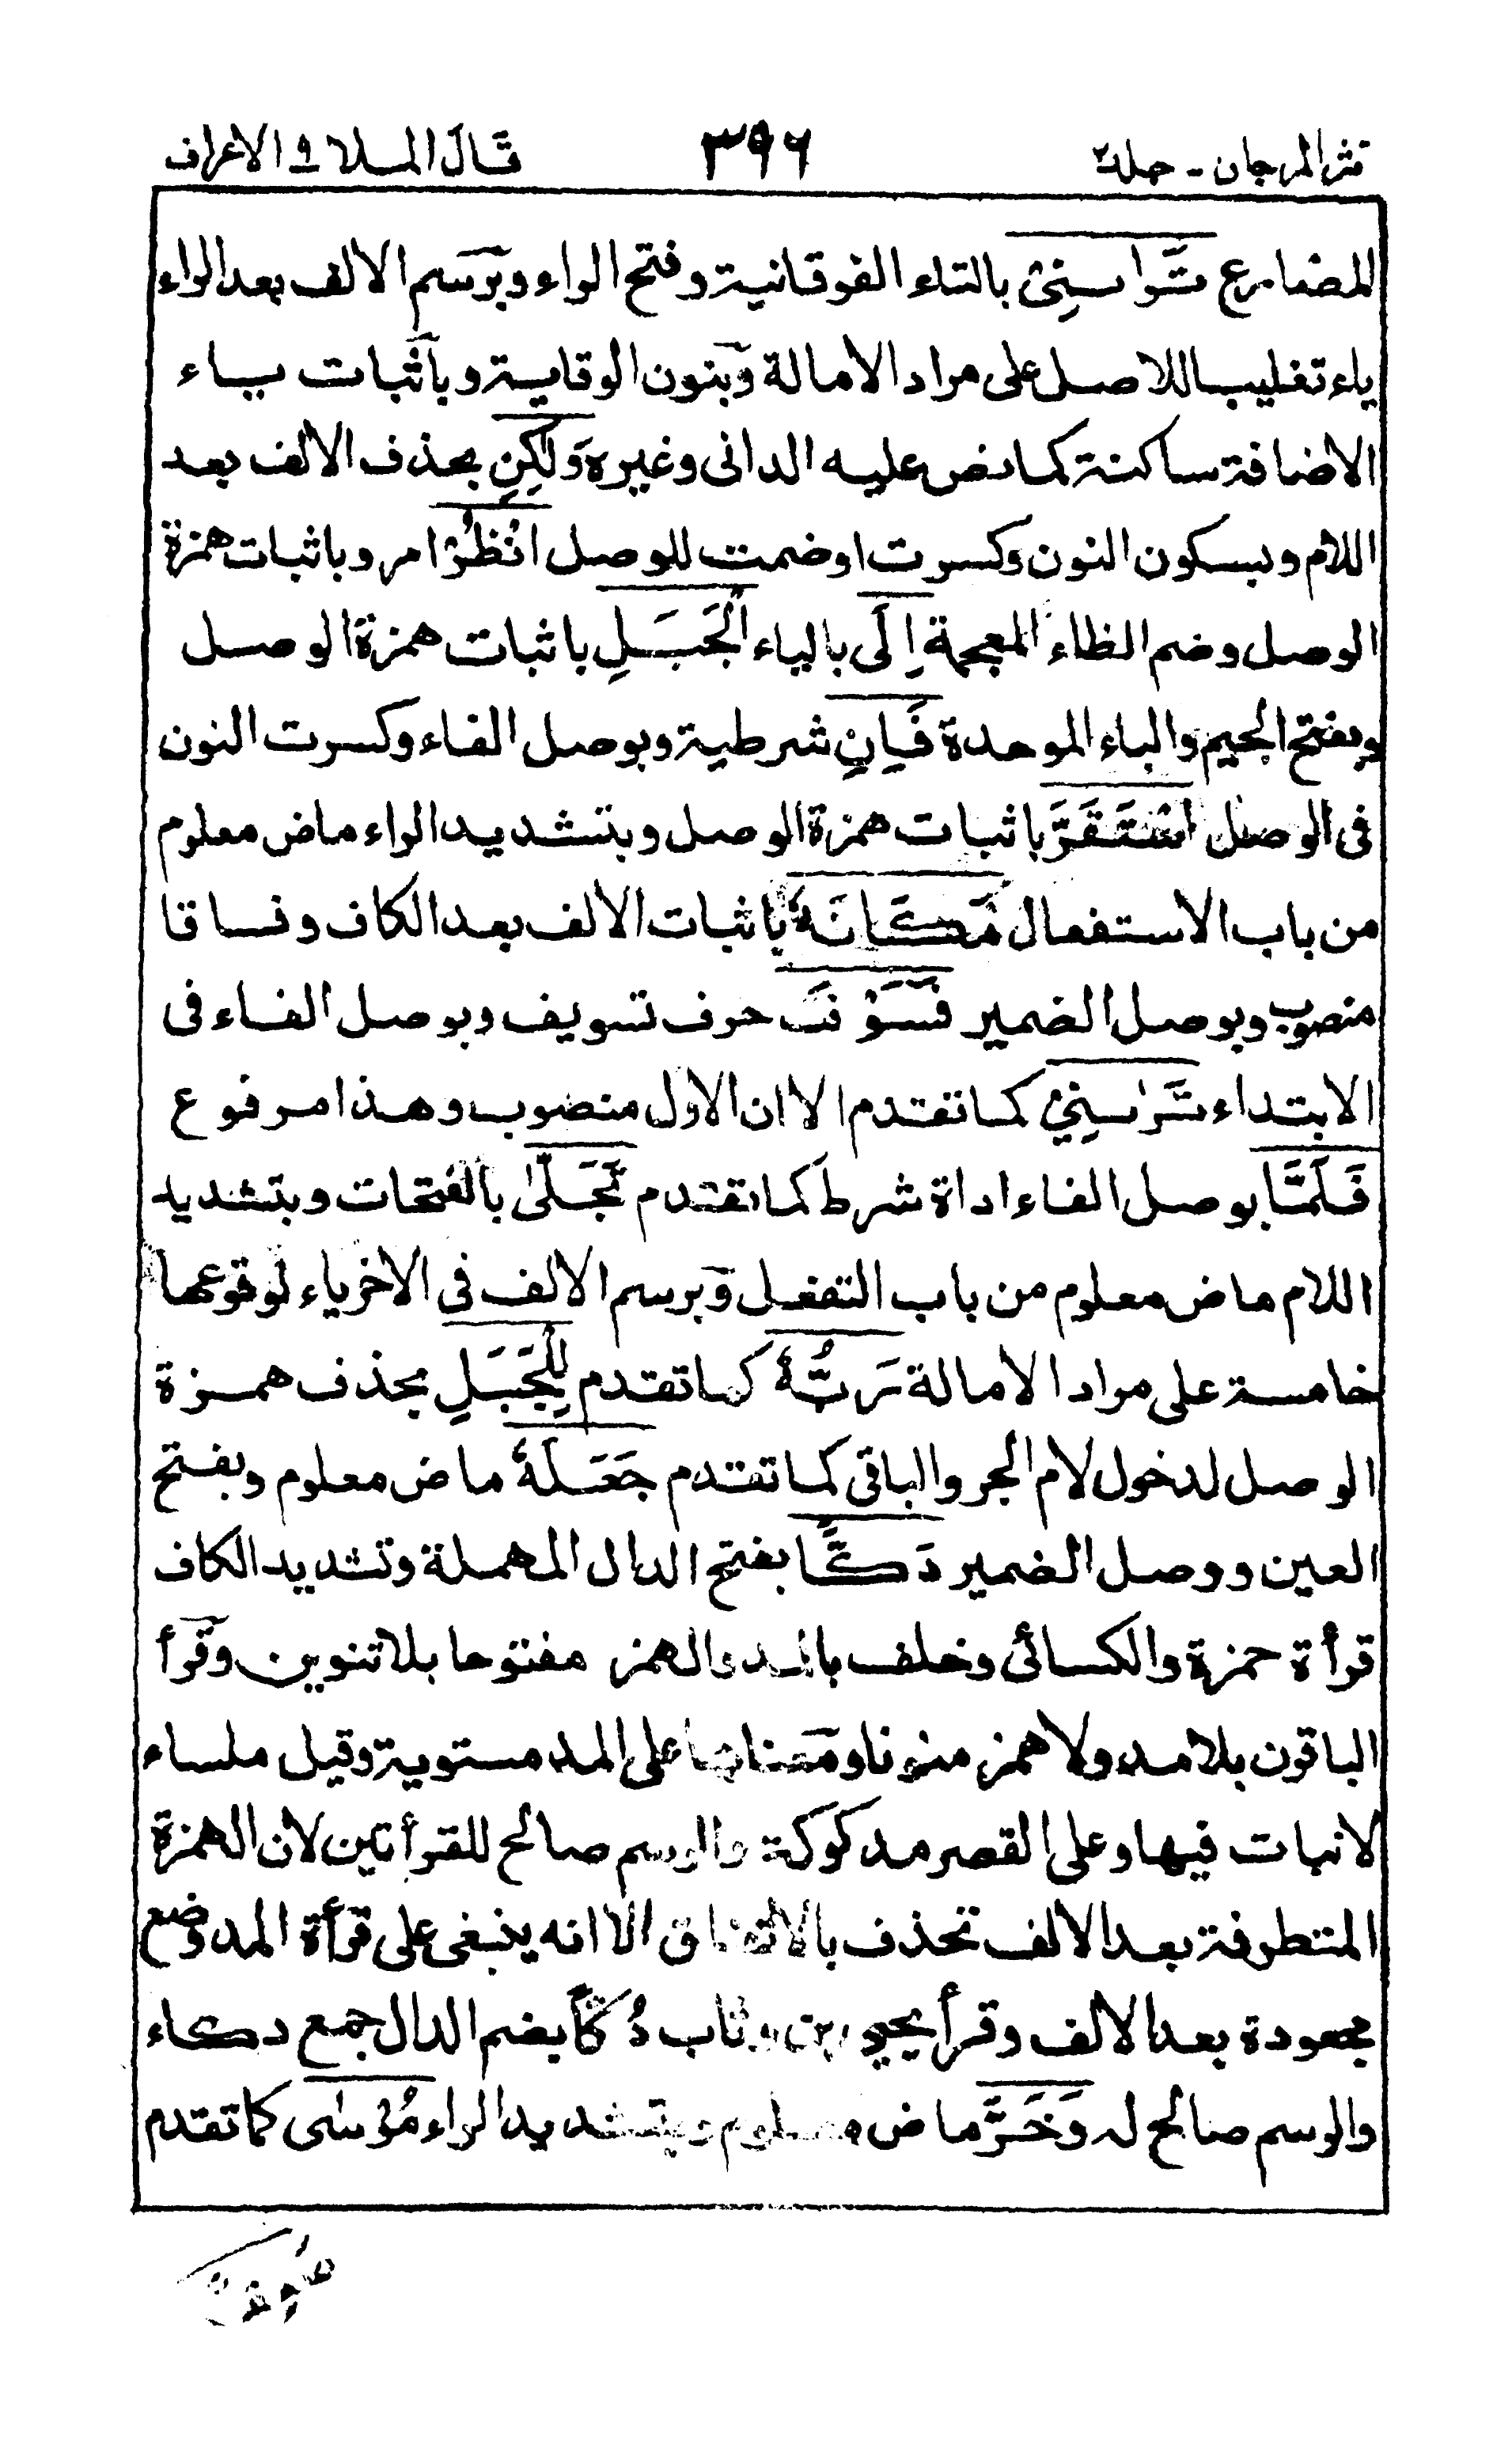 نثر المرجان - جلد ٢ ٣٩٦ قَالَ الملا ٩ الاعراف
المضارع تَرَاىنِىْ بالتاء الفوقانية وفتح الراء وبرسم الالف بعد الراء
ياء تغليبا للاصل على مراد الامالة وبنون الوقاية وباثبات ياء
الاضافة ساكنة كما نص عليه الدانى وغيره وَلٰكِنِ بحذف الالف بعد
اللام وبسكون النون وكسرت او ضمت للوصل انْظُرْ امر وباثبات همزة
الوصل وضم الظاء المعجمة اِلَى بالياء الْجَبَلِ باثبات همزة الوصل
وبفتح الجيم والباء الموحدة فَاِنِ شرطية وبوصل الفاء وكسرت النون
فى الوصل اسْتَقَرَّ باثبات همزة الوصل وبتشديد الراء ماض معلوم
من باب الاستفعال مَكَانَهٗ باثبات الالف بعد الكاف وفاقا
منصوب وبوصل الضمير فَسَوْفَ حرف تسويف وبوصل الفاء فى
الابتداء تَرٰىنِىْ كما تقدم الا ان الاول منصوب وهذا مرفوع
فَلَمَّا بوصل الفاء اداة شرط كما تقدم تَجَلّٰى بالفتحات وبتشديد
اللام ماض معلوم من باب التفعل وبرسم الالف فى الاخر ياء لوقوعها
خامسة على مراد الامالة رَبُّهٗ كما تقدم لِلْجَبَلِ بحذف همزة
الوصل لدخول لام الجر والباقى كما تقدم جَعَلَهٗ ماض معلوم وبفتح
العين ووصل الضمير دَكًّا بفتح الدال المهملة وتشديد الكاف
قرأة حمزة والكسائى وخلف بالمد والهمز مفتوحا بلا تنوين وقرأ
الباقون بلا مد ولا همز منونا ومعناها على المد مستوية وقيل ملساء
لا نبات فيها وعلى القصر مدكوكة والرسم صالح للقرأتين لان الهمزة
المتطرفة بعد الالف تحذف بالاتفاق الا انه ينبغى على قرأة المد وضع
مجعودة بعد الالف وقرأ يحيى بن وثاب دُكًّا بضم الدال جمع دكاء
والرسم صالح له وَخَرَّ ماض معلوم وبتشديد الراء مُوْسٰى كما تقدم